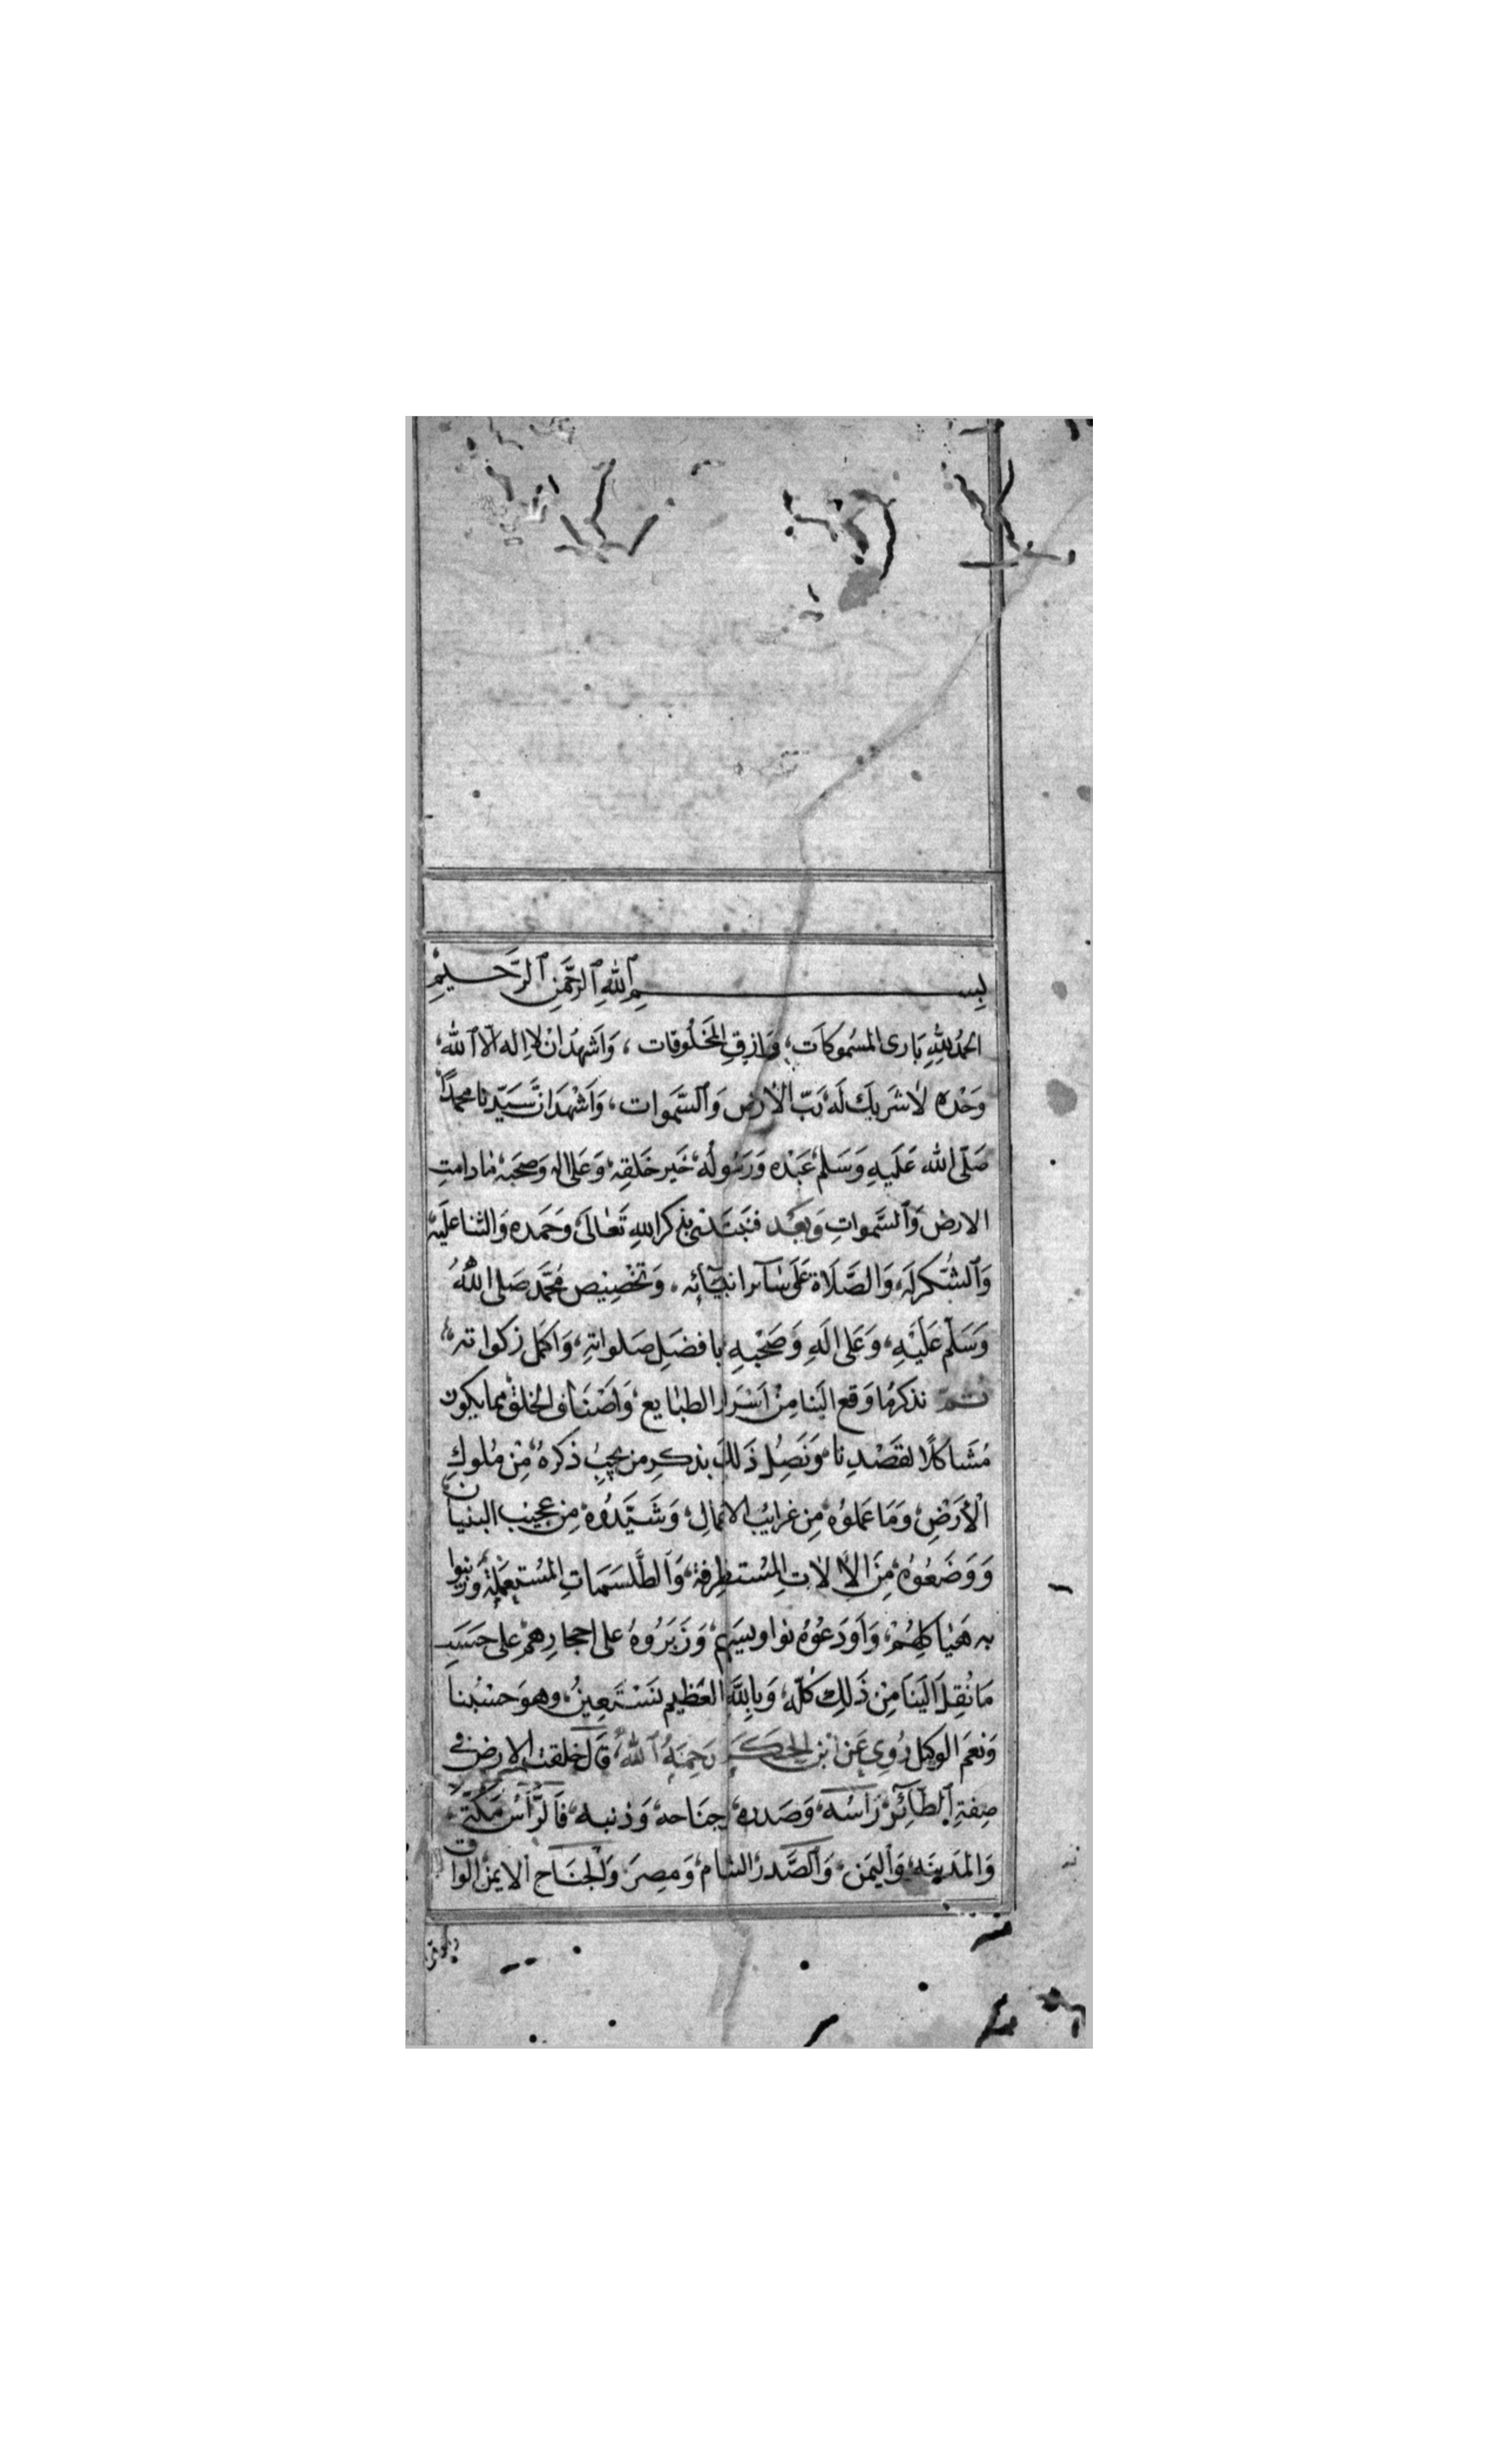 بِسـم اللهِ الرَّحْمٰنِ الرَّحـيمِ
الحمدُ للهِ بَارى المسْموكَات، وَرازقِ المَخْلُوقات، وَاَشهَدُ انْ لا اِله اِلا الله،
وَحْده لاَ شَريك لَه رَبّ الارض وَالسَّموات، وَاَشْهَدُ انَّ سَيّدنا محمداً
صَلّى الله عَلَيهِ وَسَلم عَبْده وَرَسُولُه خَير خَلقِه وَعَلى اله وَصحَبه مَا دامتِ
الارض وَالسَّمواتِ وَبَعْد فنَبتَدئ بذكر اللهِ تَعالَى وَحَمَده وَالثنا عَلَيه
وَالشُّكر لَه، وَالصَّلَاة عَلَى سَآئر انبيَآئِه، وَتَخْصِيْص مُحَمَّد صَلى اللهُ
وَسَلَّم عَلَيْهِ، وَعَلى الَهِ وَصَحْبهِ بافضَل صَلواتهِ، وَاكَمل زكواته،
ثم نذكر مَا وَقع اليَنا مِنْ اَسْرَار الطبايع، وَاَصْنَاف الخلق، مما يكون
مُشَاكلًا لقصْدِنا وَنَصِلُ ذَلكَ بذكرِ من يجبُ ذكره، مِنْ مُلوكِ
الْأَرْضِ، وَمَا عَملوُه مِن غرايُب الاعمالِ، وَشَيَّدُوه مِن عجيب البنيان
وَوَضَعُوه مِنَ الألاتِ المسْتطرفة، وَالطَّلسَمَاتِ المسْتعمَلة، وَزينوا
به هَيَاكلهُمْ، وَاَودَعُوه نواويسَهم، وَزَبَرُوهُ على احجارِهمْ على حَسَبِ
مَا نُقِلَ الَينَا مِنْ ذَلِك كلّه، وَبِاللهِ العَظيم نَسْتَعِينُ، وهوَ حَسْبُنا
وَنعَم الوَكيل رُوِي عَن ابن الحكَم رَحِمَهُ اللهُ، قَالَ خلقت الارض في
صِفةِ الطَآئِر، رَاسُه، وَصَدره، وجنَاحه، وَذنبه، فَالرَّأسُ مَكَّة
وَالمَدينَه، وَاليمَن، وَالصَّدر الشام، وَمِصرَ، وَالجنَاح الايمنُ العراق